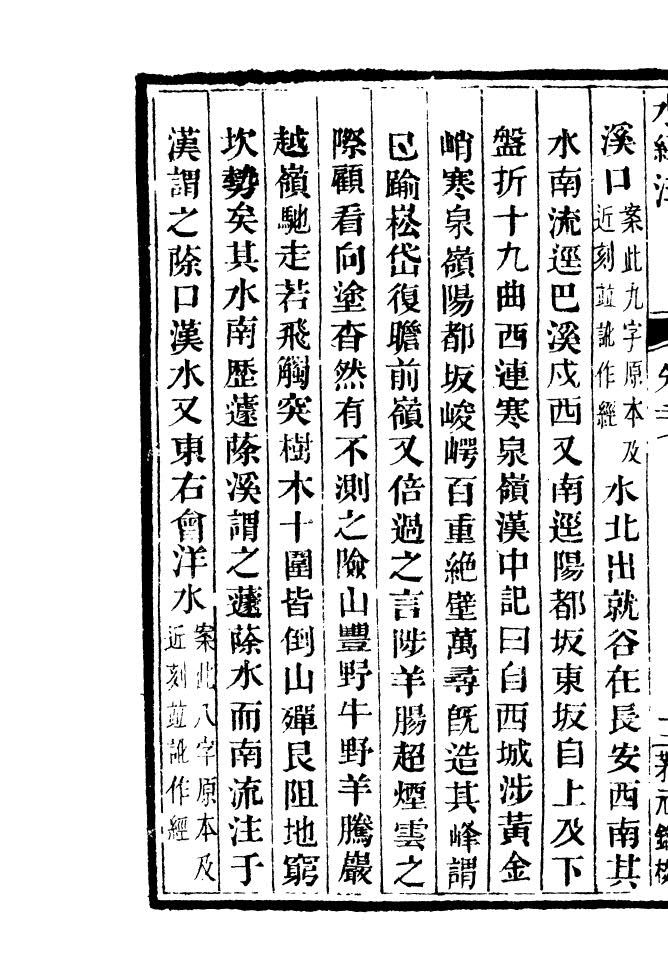 水經注
溪口案此九字原本及近刻竝訛作經水北出就谷在長安西南其
水南流逕巴溪戍西又南逕陽都坂東坂自上及下
盤折十九曲西連寒泉嶺漢中記曰自西城涉黃金
峭寒泉嶺陽都坂峻崿百重絕壁萬尋旣造其峰謂
已踰崧岱復瞻前嶺又倍過之言陟羊腸超煙雲之
際顧看向塗杳然有不測之險山豐野牛野羊騰巖
越嶺馳走若飛觸突樹木十圍皆倒山殫艮阻地窮
坎勢矣其水南歷蘧蒢溪謂之蘧蒢水而南流注于
漢謂之蒢口漢水又東右會洋水案此八字原本及近刻竝訛作經